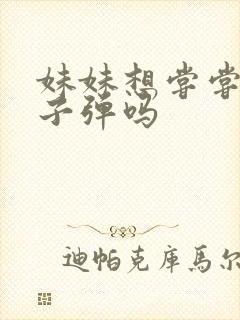 妹妹想尝尝
子弹吗
迪帕克库马尔